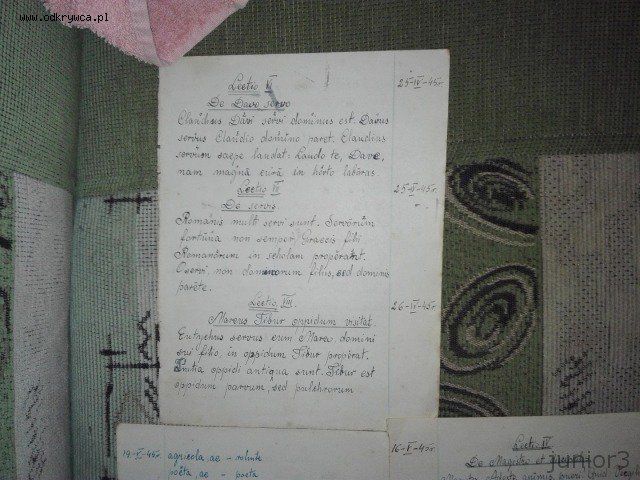 www.odkrywca.pl
Lectio VI
25-IV-45r.
De Davo servo
Claudius Davi servi dominus est. Davus
servus Claudio domino paret. Claudius
servum saepe laudat. Laudo te, Dave,
nam magna cura in horto laboras.
Lectio VII
25-IV-45r.
De servis
Romanis multi servi sunt. Servorum
fortuna non semper Graecis filii
Romanorum in scholam properant.
O servi, non dominorum filiis, sed dominis
parete.
Lectio VIII.
26-IV-45r.
Marcus Tibur oppidum visitat.
Eutychus servus cum Marco domini
sui filio, in oppidum Tibur properat.
oppidi antiqua sunt. Tibur est
oppidum parvum, sed pulchrorum
19-V-45r. agricola, ae - rolnik
poëta, ae - poeta
16-V-45r.
Lectio IV
De Magistro et
junior3